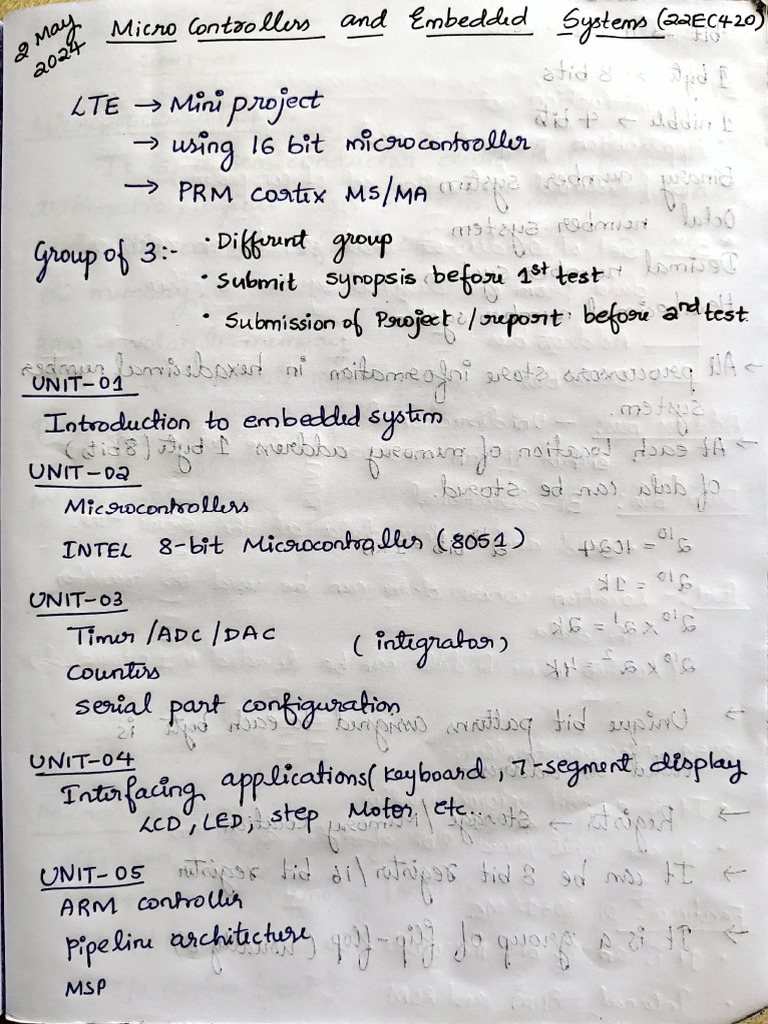 2 May 2024
Micro Controllers and Embedded Systems (22EC420)
LTE → Mini project
→ using 16 bit microcontroller
→ PRM cortex MS/MA
Group of 3:- • Different group
• Submit synopsis before 1st test
• Submission of Project / report before 2nd test
UNIT-01
Introduction to embedded system
UNIT-02
Microcontrollers
INTEL 8-bit Microcontroller (8051)
UNIT-03
Timer /ADC /DAC (integrator)
Counters
serial part configuration
UNIT-04
Interfacing applications( keyboard, 7-segment display
LCD, LED, step Motor etc.
UNIT-05
ARM controller
pipeline architecture
MSP